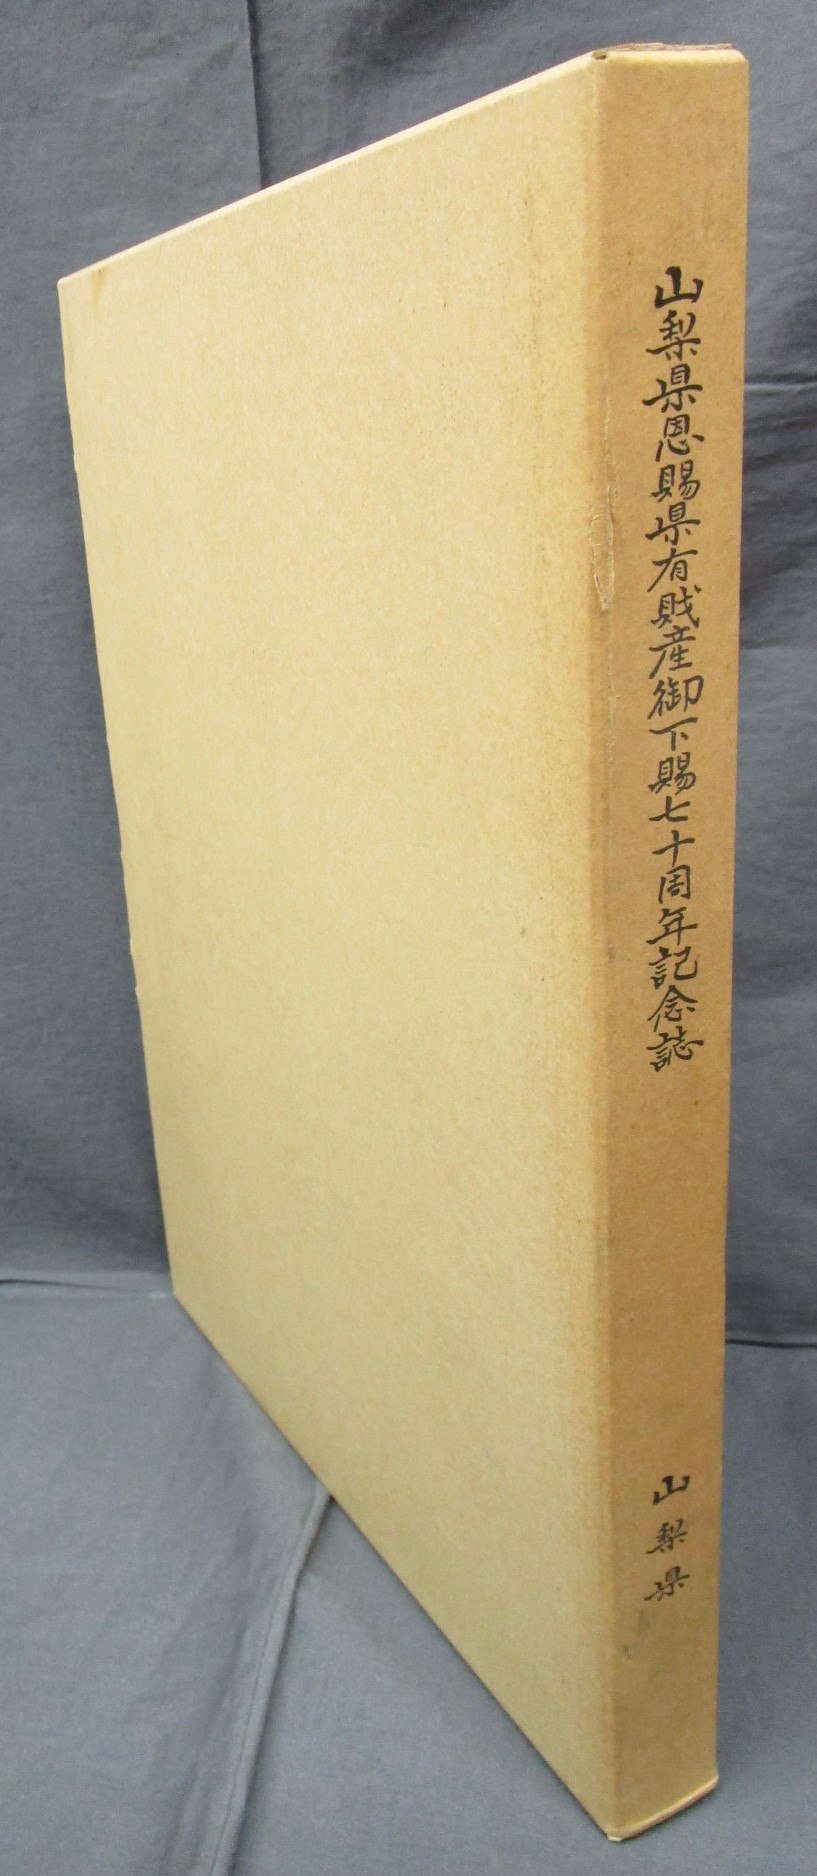 山梨県恩賜県有財産御下賜七十周年記念誌
山梨県